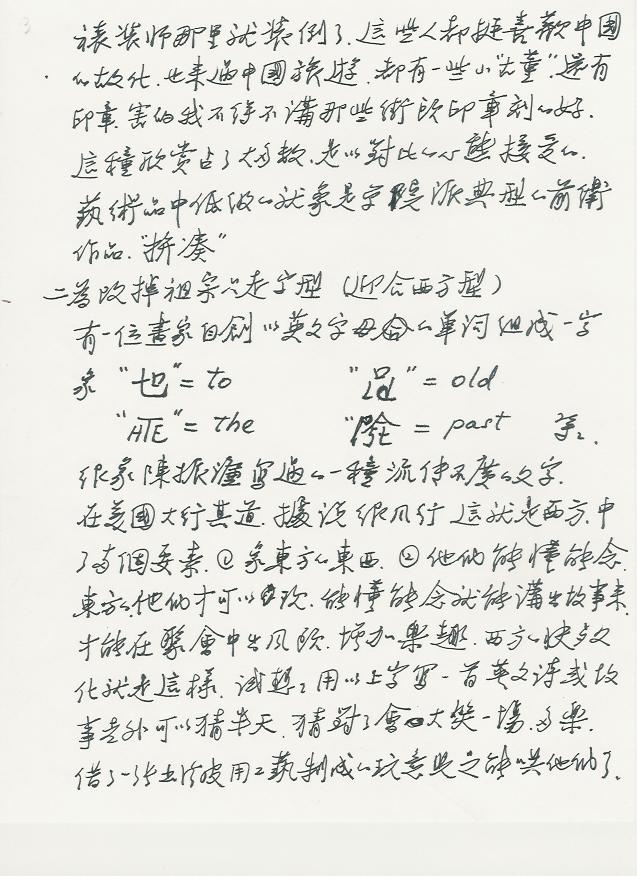 3
裱装师那里就装倒了.這些人都挺喜歡中國
的故化.也来過中國旅遊.都有一些小"古董".還有
印章.害的我不得不講那些街头印章刻的好.
這種欣赏占了大多数.是以對比的心態接受的.
藝術品中低级的就象是学院派典型的前衛
作品."拚凑"
二為改掉祖宗只走字型(迎合西方型)
有一位書家自創以英文字母合的單词组成一字
象 "也" = to " " = old
" " = the " " = past 等.
很象陳振濂寫過的一種流传不廣的文字.
在美國大行其道.據说很风行 這就是西方.中
了两個要素.①象東方的東西.②他們能懂能念.
東方的他們才可以 欣.能懂能念就能講出故事来.
才能在聚會中出风头.增加樂趣.西方的快餐文
化就是這樣.试想:用以上字寫一首英文诗或故
事老外可以猜半天.猜對了會大笑一場.多樂.
借了一张 皮用工藝制成的玩意兒足能哄他們了.